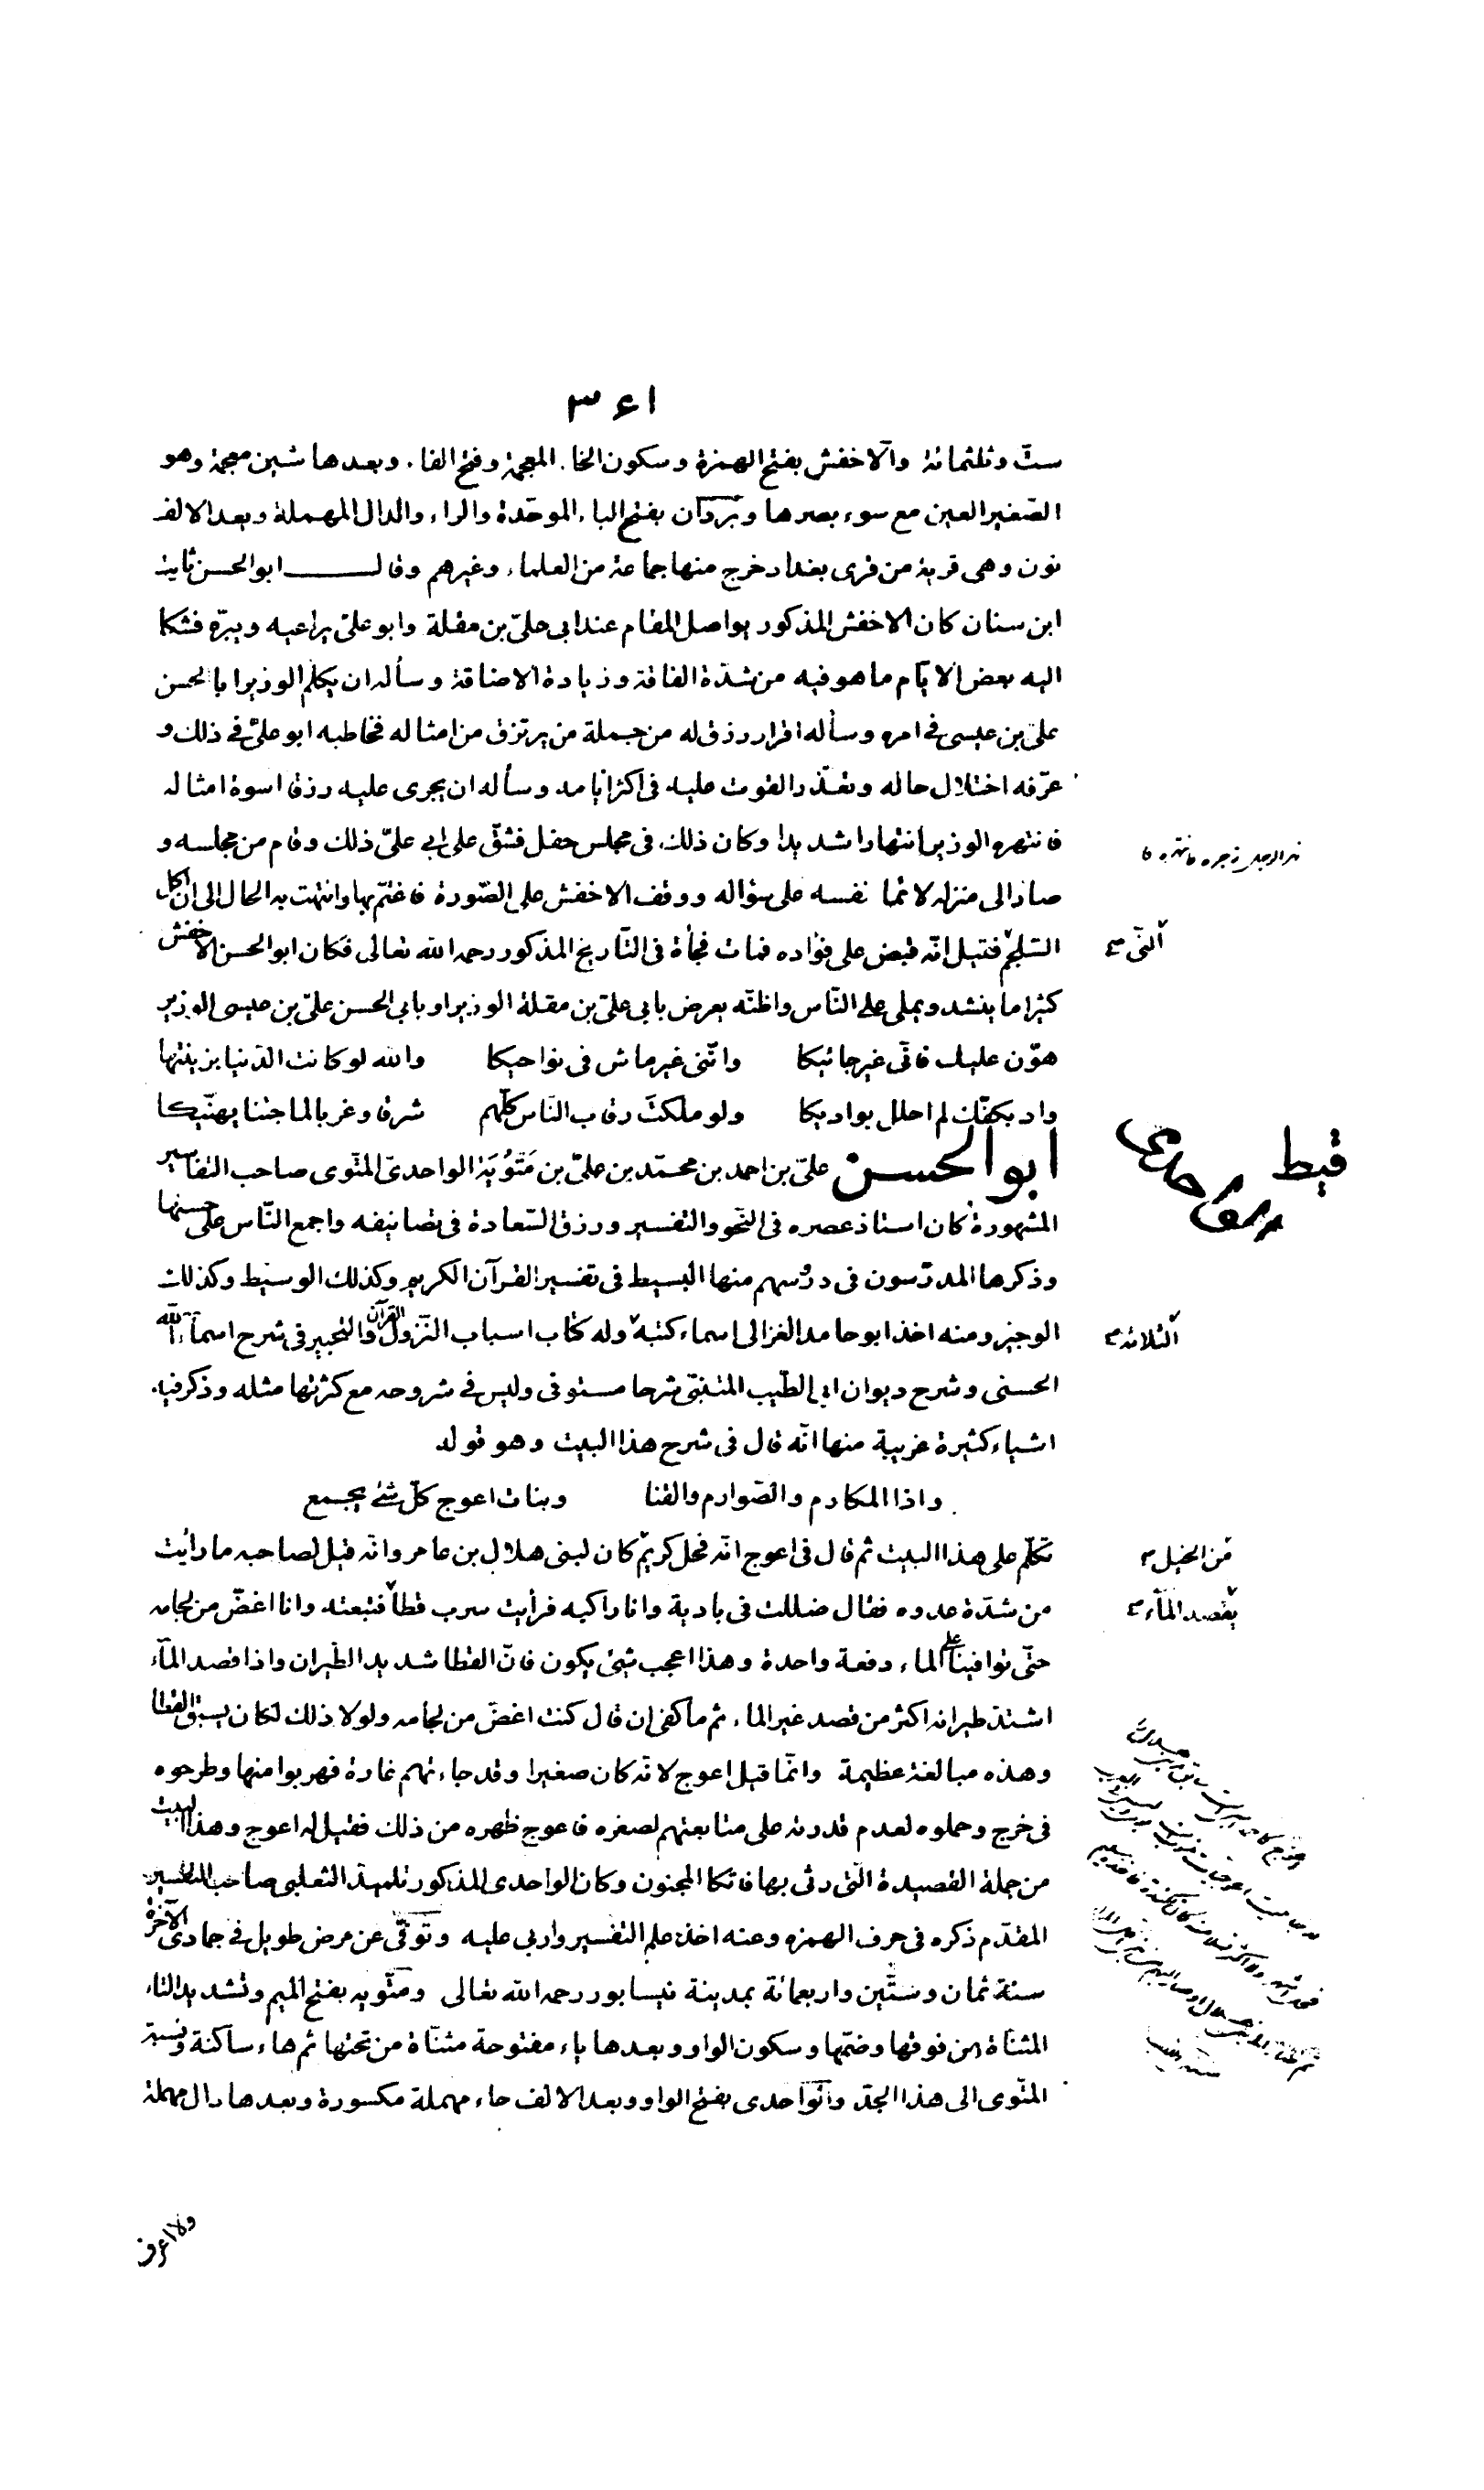 ٣٤١
ستّ وثلثمائة والاخفش بفتح الهمزة وسكون الخاء المعجمة وفتح الفاء وبعدها شين معجمة وهو
الصّغير العين مع سوء بصرها وبَرَدان بفتح الباء الموحّدة والراء والدال المهملة وبعد الالف
نون وهى قرية من قرى بغداد خرج منها جماعة من العلماء وغيرهم وقال ابو الحسن ثابت
ابن سنان كان الاخفش المذكور يواصل المقام عند ابى علىّ بن مقلة وابو علىّ يراعيه ويبرّه فشكا
اليه بعض الايّام ما هو فيه من شدّة الفاقة وزيادة الاضاقة وسأله ان يكلم الوزير ابا الحسن
علىّ بن عيسى فى امره وسأله اقرار رزق له من جملة من يرتزق من امثاله فخاطبه ابو علىّ فى ذلك و
عرّفه اختلال حاله وتعذّر القوت عليه فى اكثر ايامه وسأله ان يجرى عليه رزقا اسوة امثاله
فانتهره الوزير انتهارا شديدا وكان ذلك فى مجلس حفل فشقّ على ابى علىّ ذلك وقام من مجلسه و
صار الى منزله لائما نفسه على سؤاله ووقف الاخفش على الصّورة فاغتمّ بها وانتهت به الحال الى ان اكل
السّلجم فقيل انّه قبض على فؤاده فمات فجأة فى التّاريخ المذكور رحمه الله تعالى فكان ابو الحسن الاخفش
النّى
كثيرا ما ينشد ويملى على النّاس واظنّه يعرض بابى علىّ بن مقلة الوزير او بابى الحسن علىّ بن عيسى الوزير
هوّن عليك فانّى غير جائيكا وانّنى غير ماش فى نواحيكا والله لو كانت الدّنيا بزينتها
واد بكفّك لم احلل بواديكا ولو ملكت رقاب النّاس كلّهم شرقا وغربا لما جئنا يهنّيكا
ابو الحسن علىّ بن احمد بن محمّد بن علىّ بن مَتُّويَة الواحدىّ المتّوى صاحب التفاسير
المشهورة كان استاذ عصره فى النّحو والتفسير ورزق السّعادة فى تصانيفه واجمع النّاس على حسنها
وذكرها المدرّسون فى دروسهم منها البسيط فى تفسير القرآن الكريم وكذلك الوسيط وكذلك
الوجيز ومنه اخذ ابو حامد الغزالى اسماء كتبه وله كتاب اسباب النّزول القرآن والتحبير فى شرح اسماء الله
الثلاثة
الحسنى وشرح ديوان ابى الطّيب المتنبّى شرحا مستوفى وليس فى شروحه مع كثرتها مثله وذكر فيه
اشياء كثيرة غريبة منها انّه قال فى شرح هذا البيت وهو قوله
واذا المكارم والصّوارم والقنا وبنات اعوج كلّ شئ يجمع
تكلّم على هذا البيت ثم قال فى اعوج انّه فحل كريم كان لبنى هلال بن عامر وانّه قيل لصاحبه ما رأيت
من الخيل
من شدّة عدوه فقال ضللت فى بادية وانا راكبه فرأيت سرب قطا فتبعته وانا اغضّ من لجامه
يقصد المآء
حتّى توافينا على الماء دفعة واحدة وهذا اعجب شئ يكون فانّ القطا شديد الطّيران واذا قصد المآء
اشتدّ طيرانه اكثر من قصد غير الماء ثم ما كفى ان قال كنت اغضّ من لجامه ولولا ذلك لكان يسبق القطا
وهذه مبالغة عظيمة وانّما قيل اعوج لانّه كان صغيرا وقد جاءتهم غارة فهربوا منها وطرحوه
فى خرج وحملوه لعدم قدرته على متابعتهم لصغره فاعوج ظهره من ذلك فقيل له اعوج وهذا البيت
من جملة القصيدة الّتى رثى بها فاتكا المجنون وكان الواحدى المذكور تلميذ الثعلبى صاحب التفسير
المقدّم ذكره فى حرف الهمزه وعنه اخذ علم التفسير واربى عليه وتوفّى عن مرض طويل فى جمادى الآخرة
سنة ثمان وستّين واربعمائة بمدينة نيسابور رحمه الله تعالى ومتّويه بفتح الميم وتشديد التاء
المثنّاة من فوقها وضمّها وسكون الواو وبعدها ياء مفتوحة مثنّاة من تحتها ثم هاء ساكنة ونسبة
المتّوى الى هذا الجدّ والواحدى بفتح الواو وبعد الالف حاء مهملة مكسورة وبعدها دال مهملة
ولا اعرف